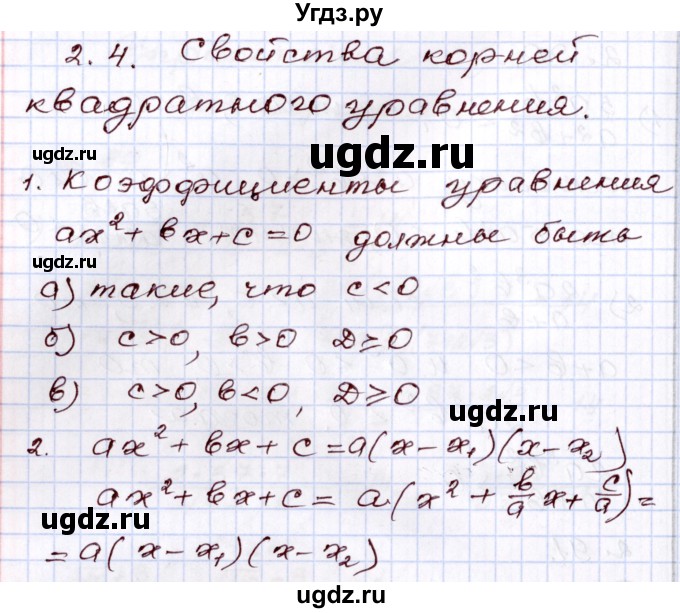 Угдз.ру
2.4. Свойства корней
квадратного уравнения.
ugdz.ru
ugdz.ru
1. Коэффициенты уравнения
ax² + bx + c = 0 должны быть
ugdz.ru
а) такие, что c < 0
б) c > 0, b > 0 D ≥ 0
в) c > 0, b < 0, D ≥ 0
ugdz.ru
2. ax² + bx + c = a(x - x₁)(x - x₂)
ax² + bx + c = a·(x² + b/a x + c/a) =
ugdz.ru
ugdz.ru
= a(x - x₁)(x - x₂)
Угдз.ру